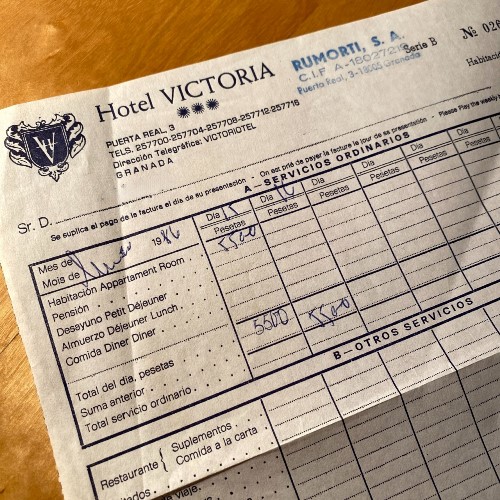 Hotel VICTORIA
RUMORTI, S. A.
Serie B
Nº 026
C.I.F. A-18027219
Puerta Real, 3-18005 Granada
Habitació
PUERTA REAL, 3
TELS. 257700-257704-257708-257712-257716
Dirección Telegráfica: VICTORIOTEL
GRANADA
V H
Sr. D.
Se suplica el pago de la factura el día de su presentación - On est prié de payer la facture le jour de sa présentation - Please Pay the weekly
A — SERVICIOS ORDINARIOS
Día Día Día Día Día
Pesetas Pesetas Pesetas Pesetas Pesetas
Mes de
Mois de
1986
Habitación Appartament Room
5500
Pensión
Desayuno Petit Déjeuner
Almuerzo Déjeuner Lunch
Comida Diner Diner
Total del día, pesetas
5500 5500
Suma anterior
Total servicio ordinario
B—OTROS SERVICIOS
Restaurante { Suplementos
Comida a la carta
viaje